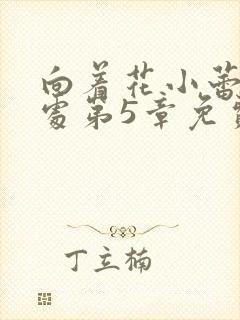 向着花小蕾
处第5章免费
丁立楠